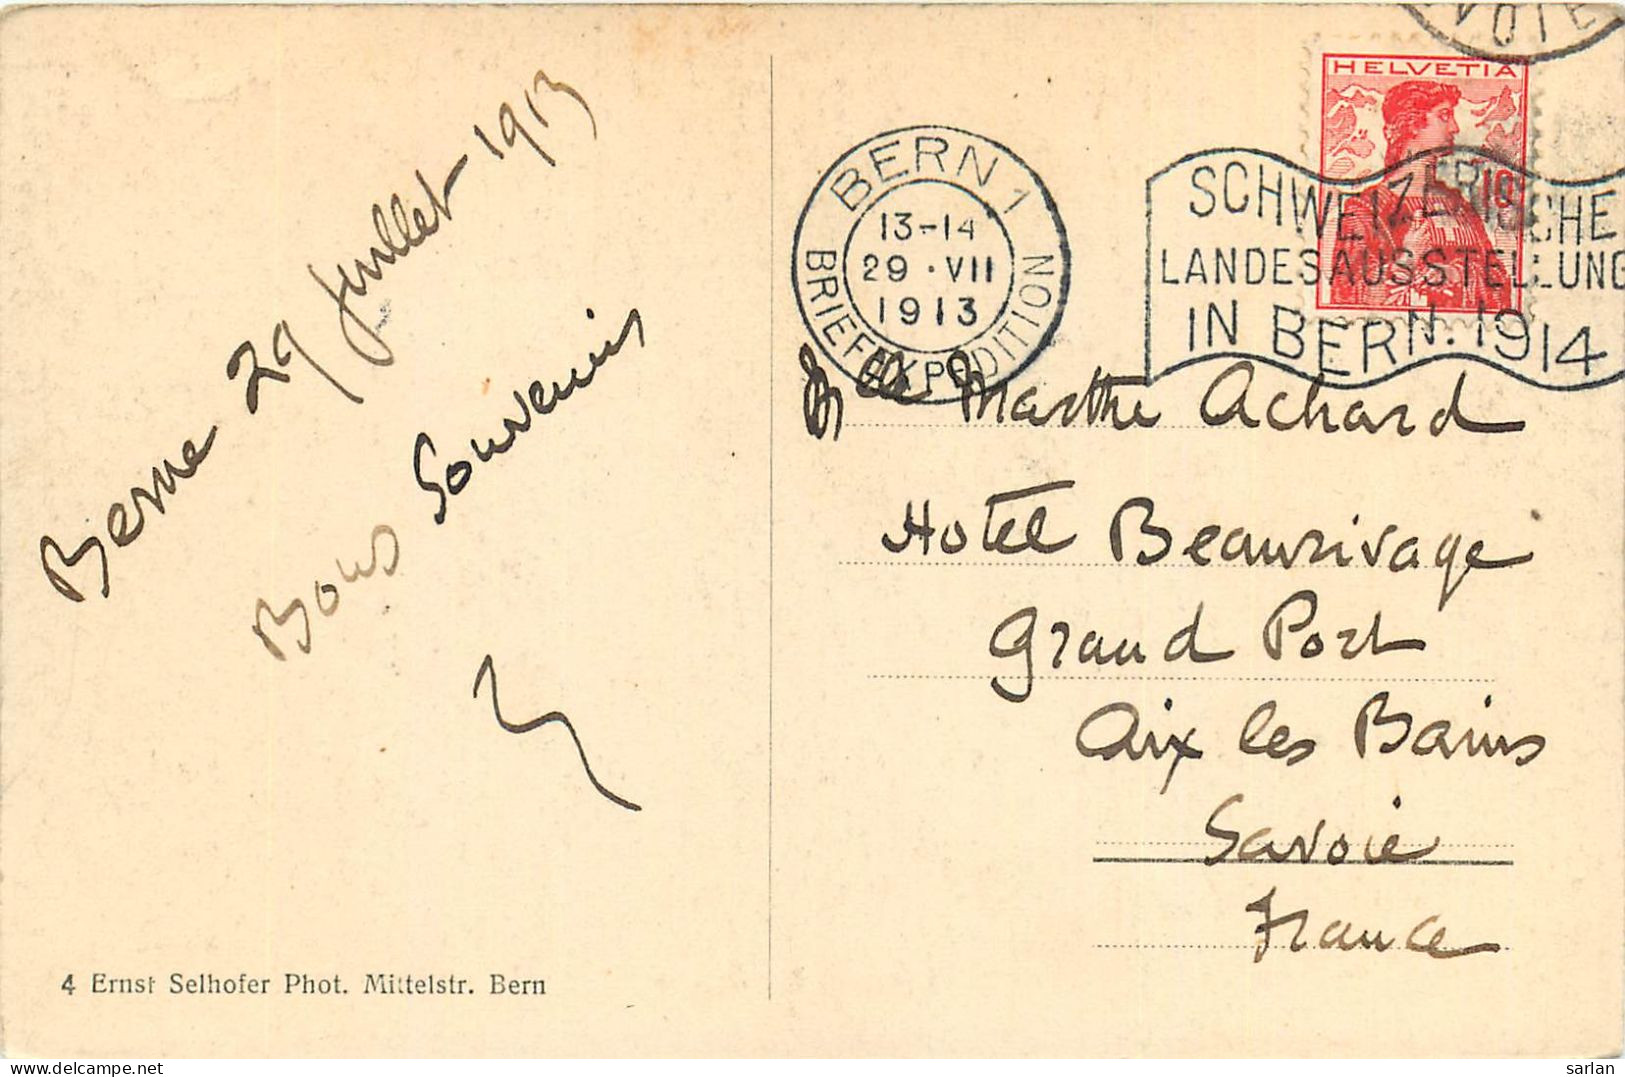 Berne 29 Juillet 1913
Bons Souvenirs
4 Ernst Selhofer Phot. Mittelstr. Bern
VOIE
HELVETIA
10
BERN 1
13-14
29·VII
1913
BRIEFEXPEDITION
SCHWEIZERISCHE
LANDESAUSSTELLUNG
IN BERN. 1914
Mlle Marthe Achard
Hotel Beaurivage
Grand Port
Aix les Bains
Savoie
France
sarlan